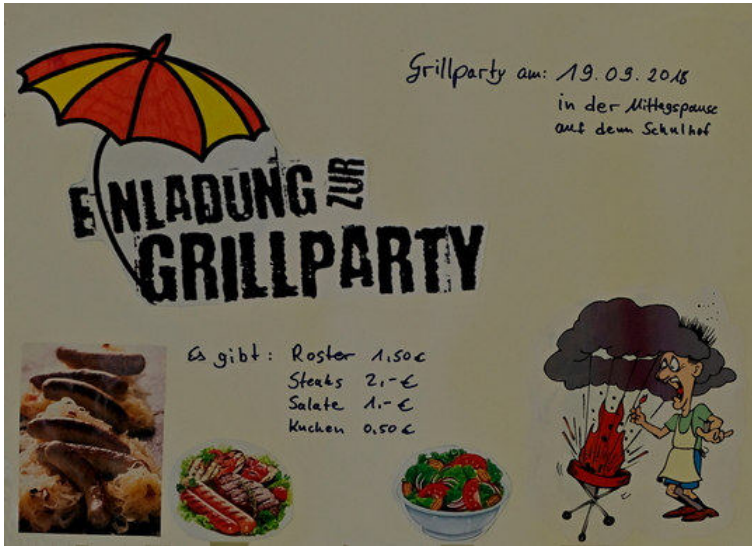 Grillparty am: 19.09.2018
in der Mittagspause
auf dem Schulhof
EINLADUNG ZUR
GRILLPARTY
Es gibt: Roster 1,50€
Steaks 2,-€
Salate 1,-€
Kuchen 0,50€